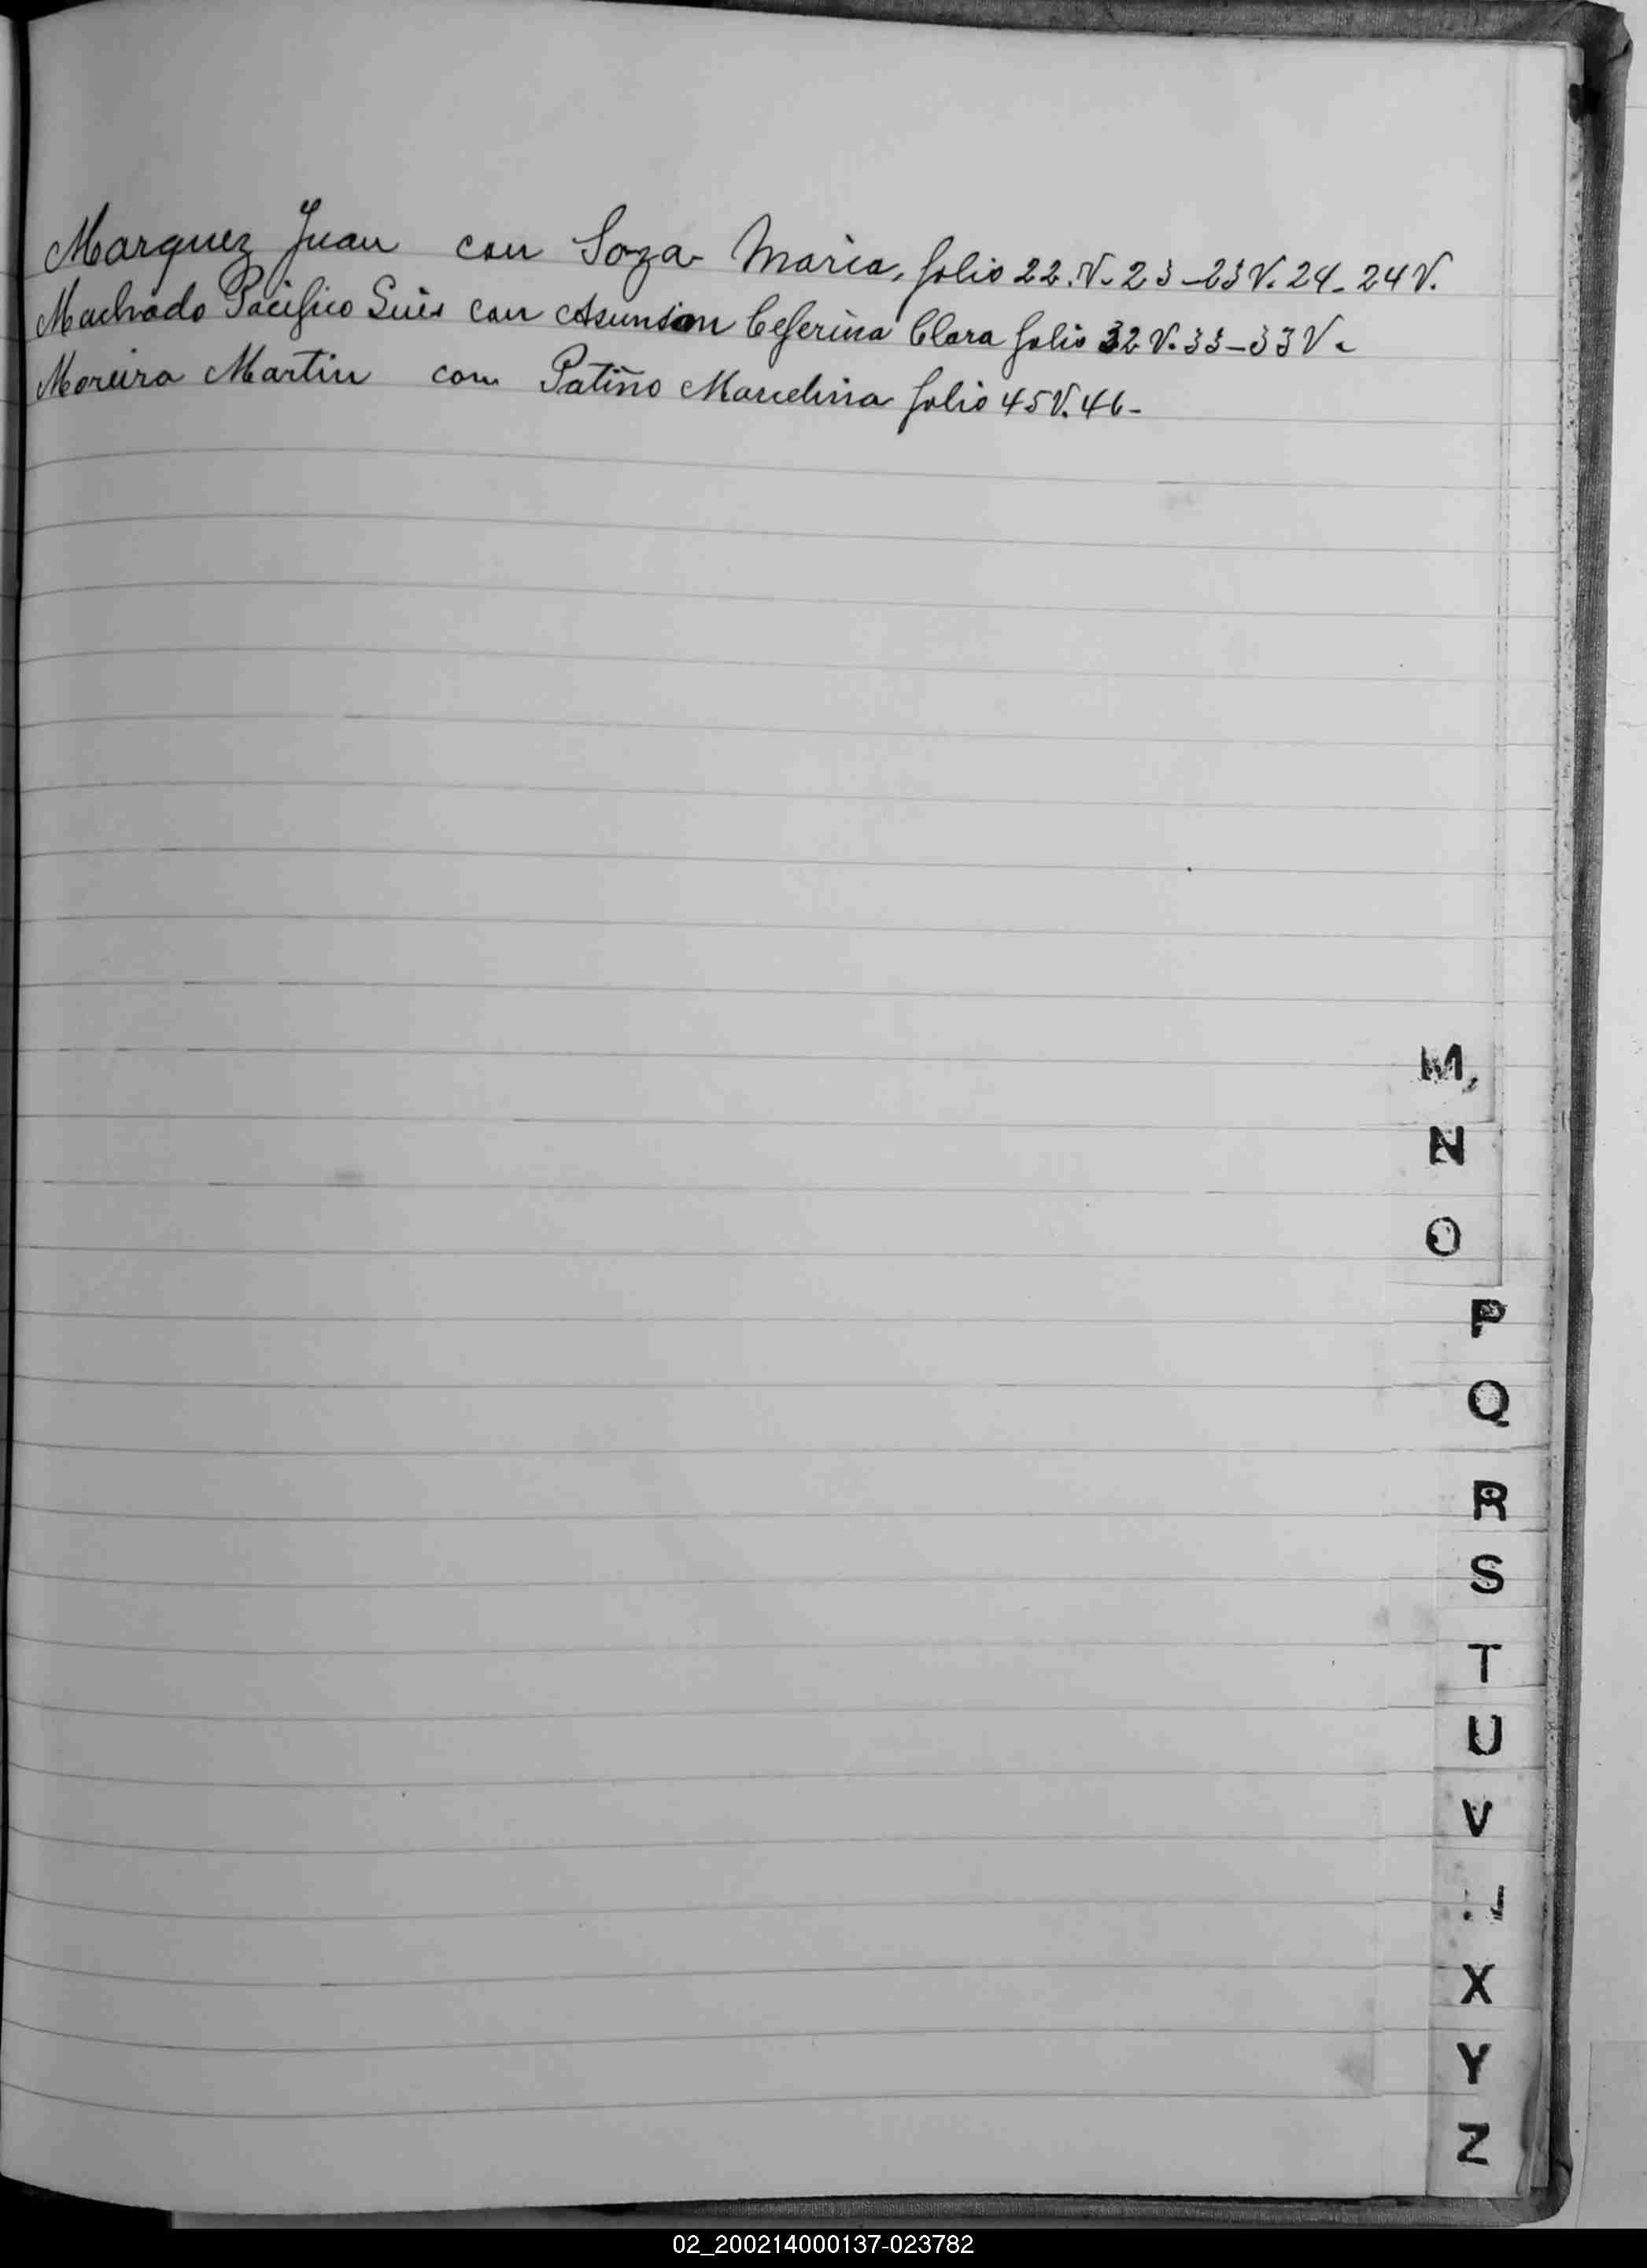 Marquez Juan con Soza Maria, folio 22.V. 23-23V. 24-24V.
Machado Pacifico Luis con Asunsion Ceferina Clara folio 32V. 33-33V.
Moreira Martin con Patiño Marcelina folio 45V. 46-
M
N
O
P
Q
R
S
T
U
V
X
Y
Z
02_200214000137-023782